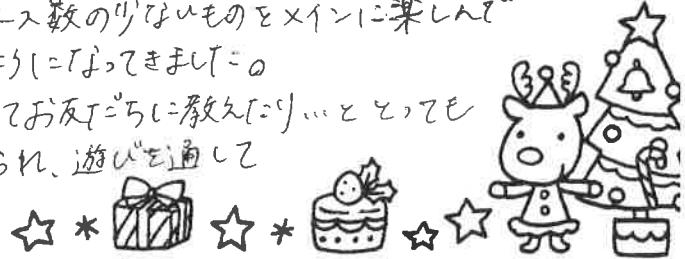 ース数の少ないものをメインに楽しんで
ようになってきました。
てお友だちに教えたり…ととっても
られ、遊びを通して